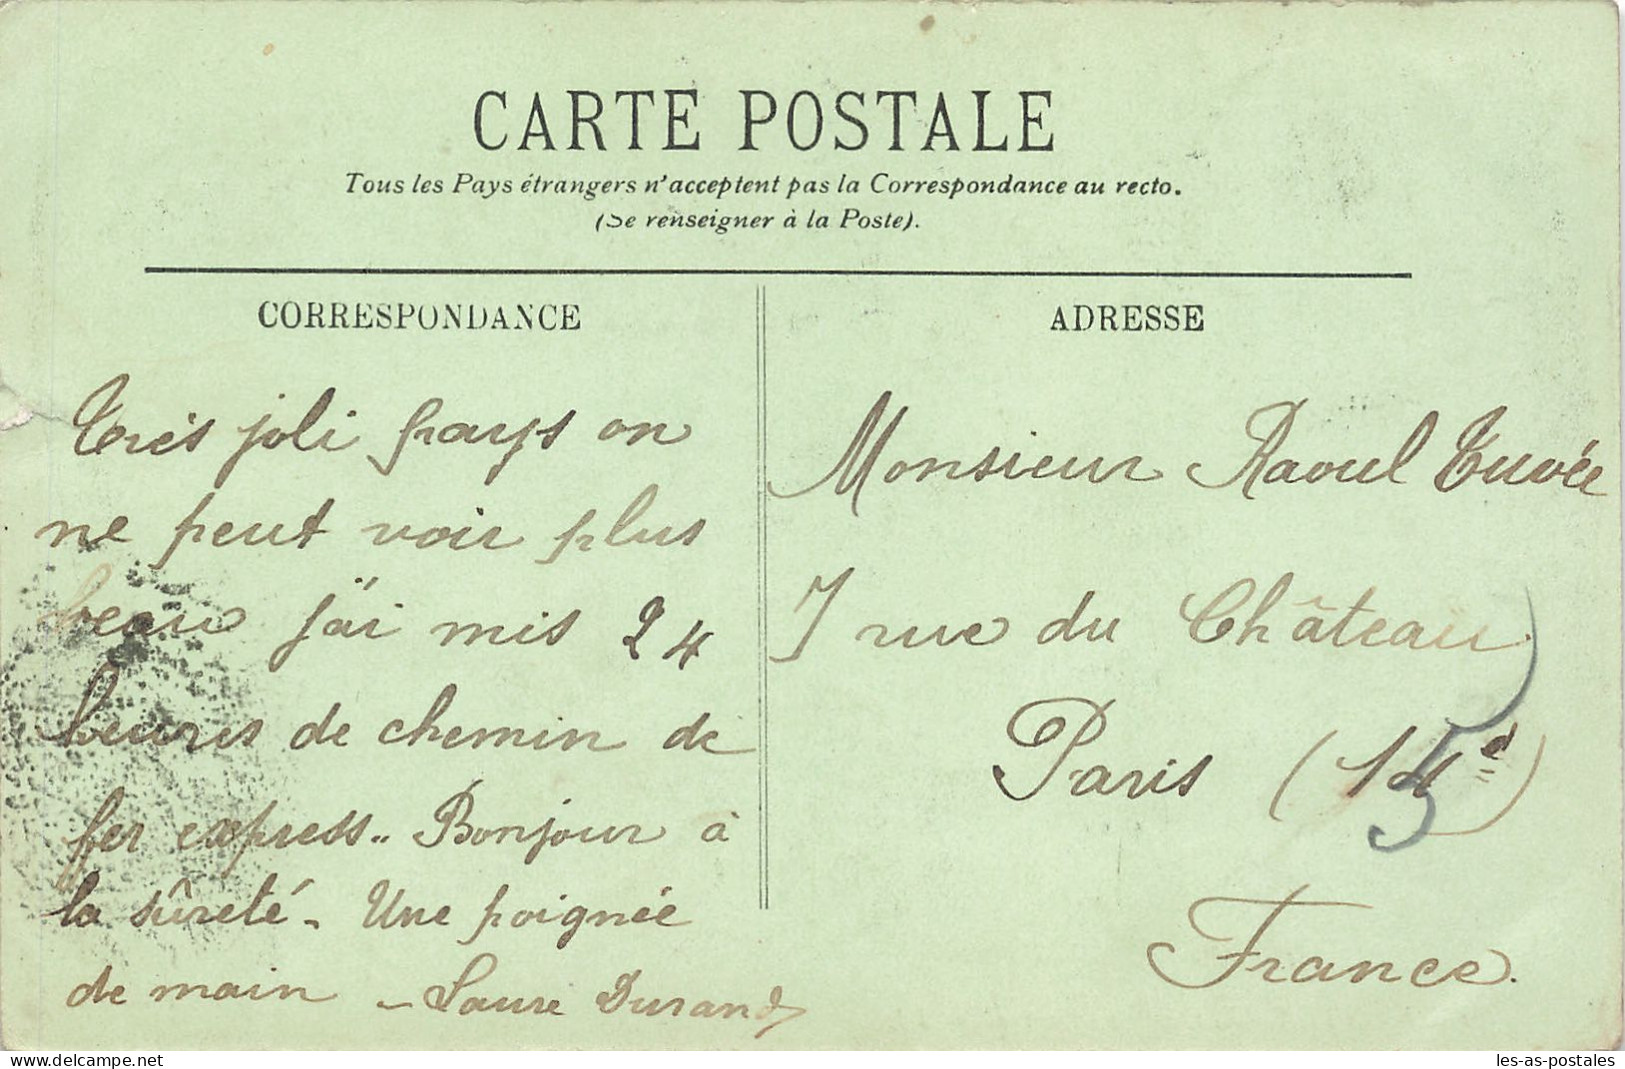 CARTE POSTALE
Tous les Pays étrangers n'acceptent pas la Correspondance au recto.
(Se renseigner à la Poste).
CORRESPONDANCE
Très joli pays on
ne peut voir plus
beau j'ai mis 24
heures de chemin de
fer express.. Bonjour à
la sûreté. Une poignée
de main - Laure Durand
ADRESSE
Monsieur Raoul Cuvée
7 rue du Château
Paris (14e)
5
France.
www.delcampe.net
les-as-postales